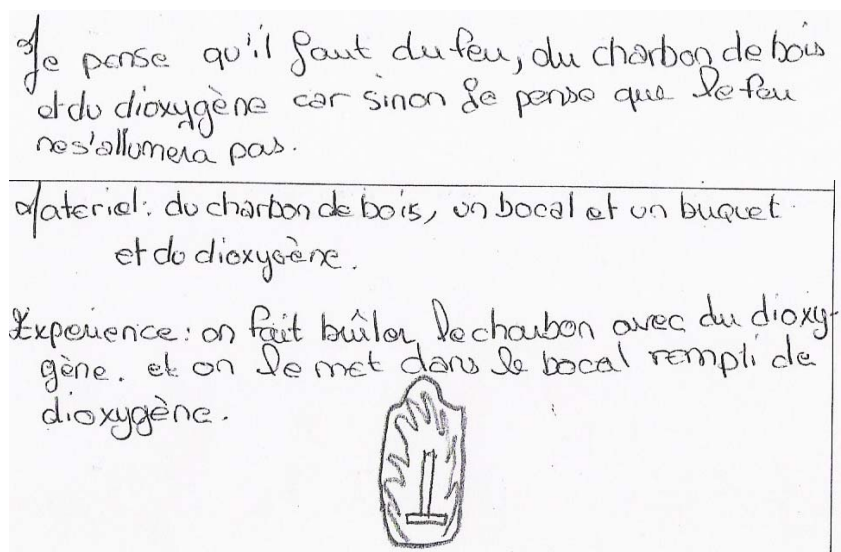 Je pense qu'il faut du feu, du charbon de bois
et du dioxygène car sinon je pense que le feu
ne s'allumera pas.
Materiel: du charbon de bois, un bocal et un buquet
et du dioxygène.
Experience: on fait buîler le charbon avec du dioxy-
gène. et on le met dans le bocal rempli de
dioxygène.